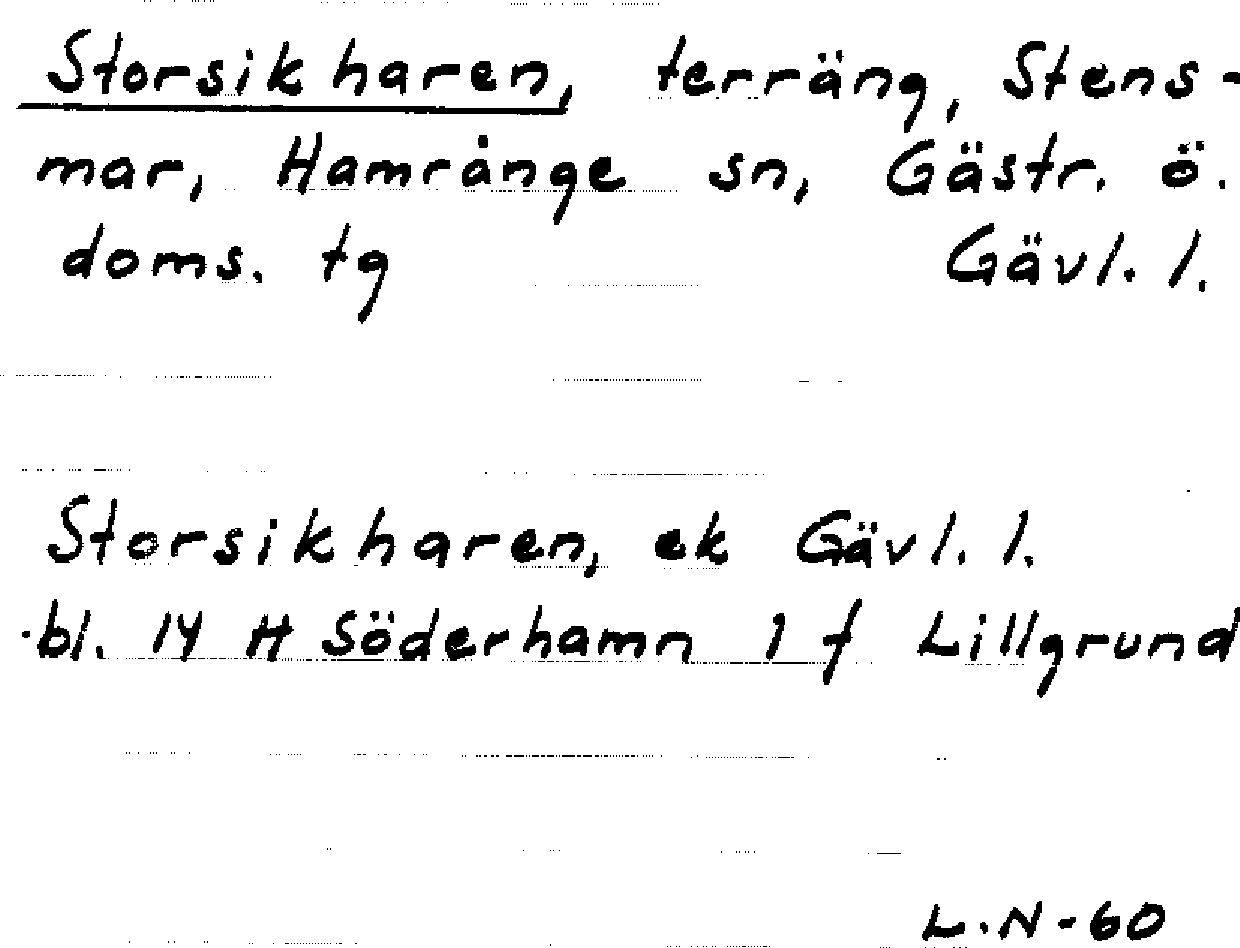 Storsikharen, terräng, Stens-
mar, Hamrånge sn, Gästr. ö.
doms. tg Gävl. l.
Storsikharen, ek Gävl. l.
bl. 14 H Söderhamn 1 f Lillgrund
L.N-60